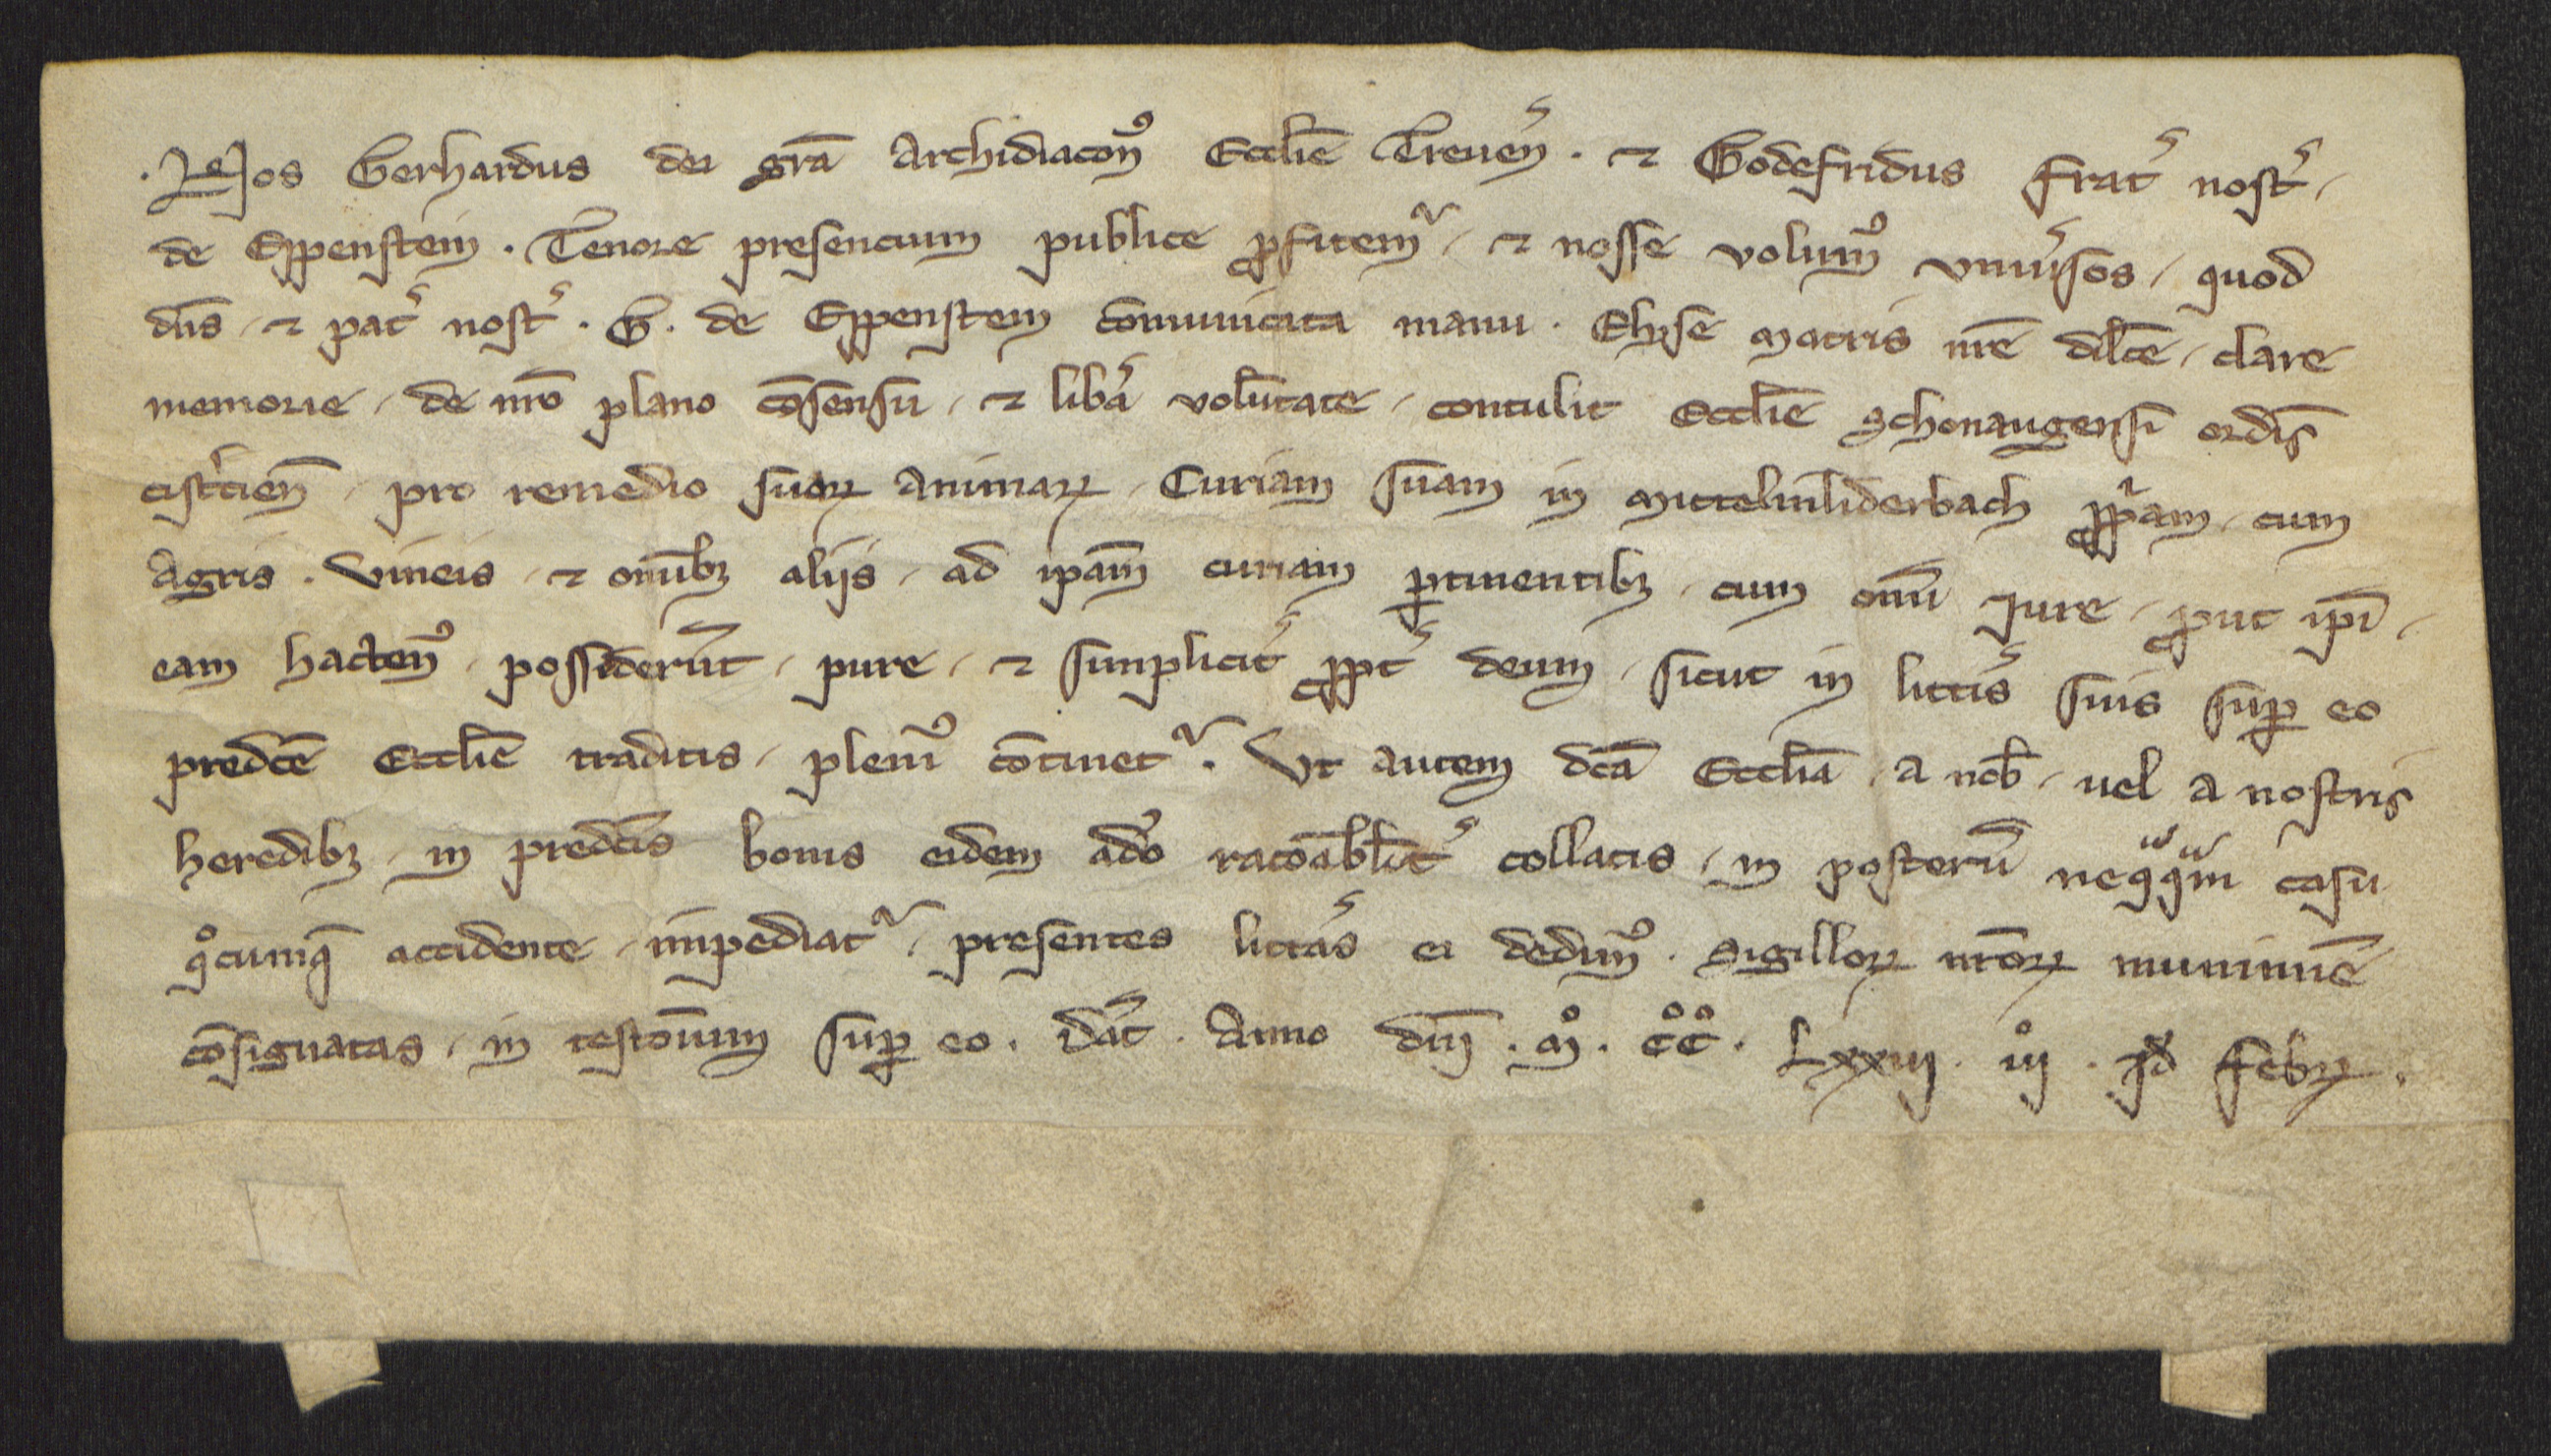 .Nos Gerhardus dei gr̄a Archidiacon᷒ Eccl̄ie Treueñ. ⁊ Godefridus frat̛ nost̛.
de Eppenstein. Tenore presencium publice ꝓfitem̛ . ⁊ nosse volum᷒ vniưsos . quod
dn̄s . ⁊ pat̛ nost̛ . G . de Eppenstein com̄unicata manu . Elyse matris nr̄e dilc̄e . clare
memorie . de nr̄o plano cōsensu . ⁊ lib̛a volūtate . contulit Eccl̄ie Schonaugensi ordīs
cist̛cieñ . pro remedio suoꝝ Animaꝝ . Curiam suam in Mittelinliderbach ꝓpͥam . cum
Agris . Vineis . ⁊ om̄ibꝫ alijs . ad ip̄am curiam ꝑtinentibꝫ . cum om̄i Jure . ꝓut ip̄i .
eam hacten᷒ . possiderūt . pure . ⁊ simplicit̛ ꝓpt̛ deum . sicut in litt̛is suis suꝑ eo
predc̄e Eccl̄ie traditis . pleni᷒ cōtinet̛ . Vt autem dc̄a Eccl̄ia . a nob̄ . uel a nostris
heredibꝫ . in predc̄is bonis eidem adeo rac̄onabl̄it̛ collatis . in posterū neqͣqͣm casu
qͦcumqꝫ accidente . impediat̛ . presentes litt̛as ei dedim᷒ . Sigilloꝝ nr̄oꝝ munimīe
cōsignatas . in testīonium suꝑ eo . Dat̄ . Anno dn̄i . Mͦ . CͦCͦ . Lxxiij . iijͦ . Jd̄ Febꝝ .